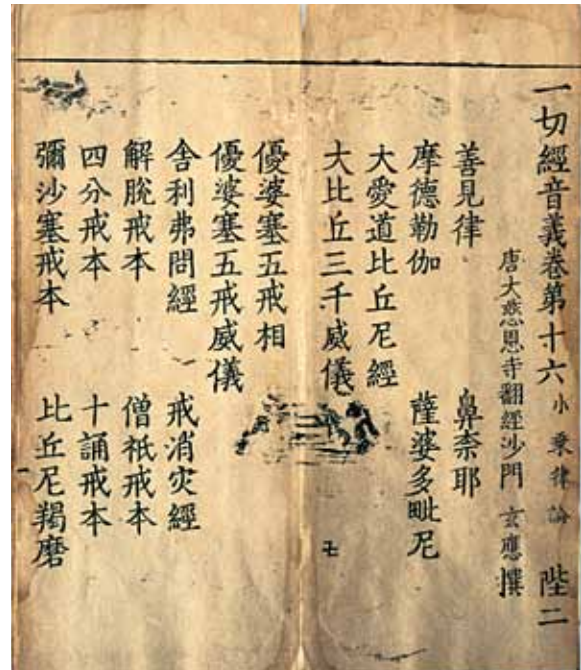 一切經音義卷第十六 小乗律論 陛二
唐大慈恩寺翻經沙門 玄應撰
善見律 鼻柰耶
摩德勒伽 薩婆多毗尼
大愛道比丘尼經
大比丘三千威儀
優婆塞五戒相
優婆塞五戒威儀
舍利弗問經 戒消灾經
解脫戒本 僧祇戒本
四分戒本 十誦戒本
彌沙塞戒本 比丘尼羯磨